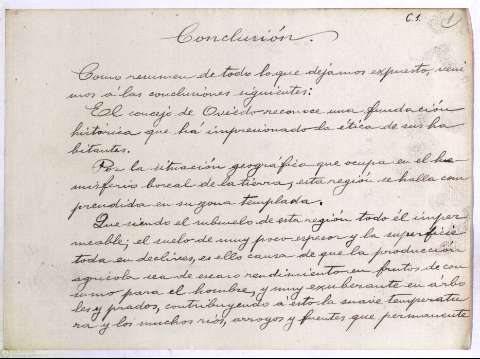 C.1.
1
Conclusión.
Como resumen de todo lo que dejamos expuesto, veni
mos a las conclusiones siguientes:
El concejo de Oviedo reconoce una fundación
histórica que há impresionado la ética de sus ha
bitantes.
Por la situación geográfica que ocupa en el he-
misferio boreal de la tierra, esta región se halla com
prendida en su zona templada.
Que siendo el subsuelo de esta región todo él imper
meable; el suelo de muy poco espesor y la superficie
toda en declives, es ello causa de que la producción
agrícola sea de escaso rendimiento en frutos de con
sumo para el hombre, y muy exuberante en arbo
les y prados, contribuyendo a esto la suave temperatu
ra y los muchos ríos, arroyos y fuentes que permanente